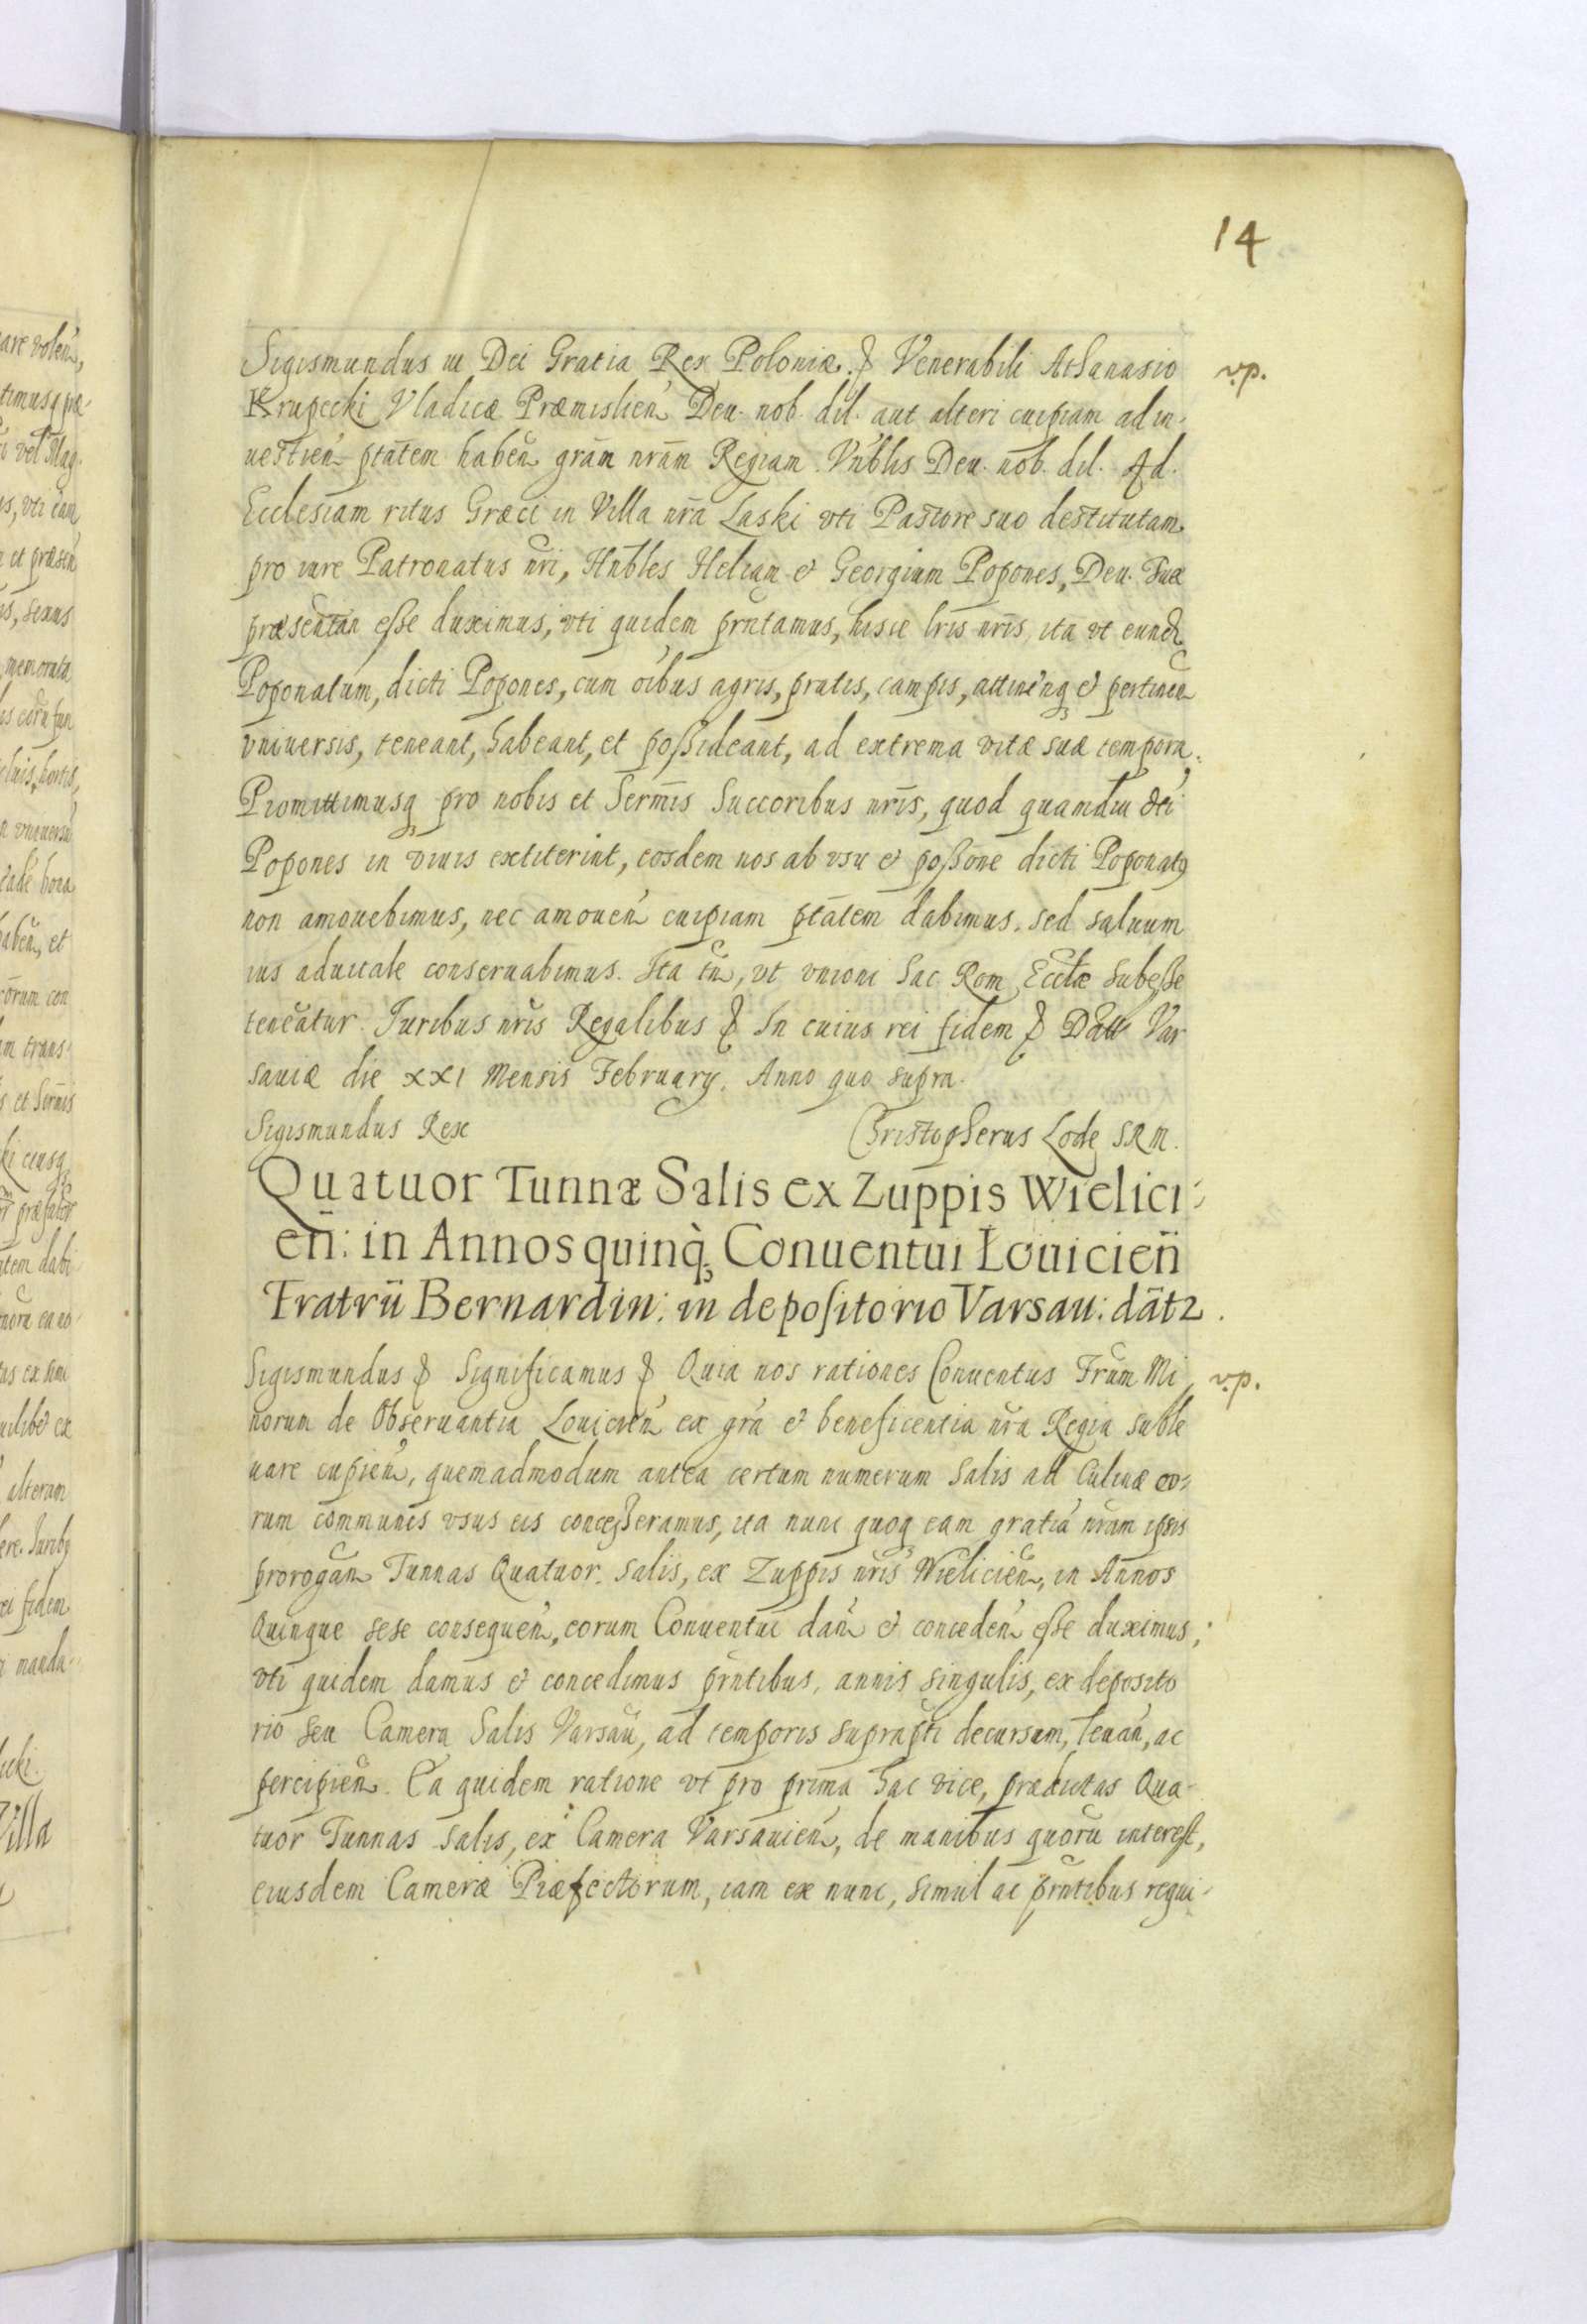 14
Sigismundus III Dei Gratia Rex Poloniæ. & Venerabili Athanasio
v.p.
Krupecki Vladicæ Præmislien̄ Deu. nob. dil. aut alteri cuipiam ad in-
uestien̄ ptātem haben̄ grām nrām Regiam. Vnblis Deu. nob. dil. Ad
Ecclesiam ritus Græci in Villa nr̄a Laski vti Pastore suo destitutam
pro iure Patronatus nr̄i, Hnbles Heliam et Georgium Popones, Deu. Tuæ
præsentan̄ esse duximus, vti quidem prn̄tamus, hisce lrīs nrīs, ita vt eund
Poponatum, dicti Popones, cum oībus agris, pratis, campis, attinen̄q et pertinen̄
vniuersis, teneant, habeant, et possideant, ad extrema vitæ suæ tempora.
Promittimusq pro nobis et Sermīs Succoribus nrīs, quod quamdiu dc̄i
Popones in viuis extiterint, eosdem nos ab vsu et possōne dicti Poponatꝰ
non amouebimus, nec amouen̄ cuipiam ptātem dabimus. sed saluum
ius aduitale conseruabimus. Ita tn̄, vt vnioni Sac. Rom. Ecctæ Subesse
teneatur. Iuribus nrīs Regalibus & In cuius rei fidem & Datt Var
sauiæ die XXI Mensis February. Anno quo supra.
Sigismundus Rex Christopherus Lode SRM.
Quatuor Tunnæ Salis ex Zuppis Wielici:
en̄: in Annos quinq̀ Conuentui Łouicien̄
Fratrū Bernardin: in depositorio Varsau: dāt2.
Sigismundus & Significamus & Quia nos rationes Conuentus Frūm Mi
v.p.
norum de Obseruantia Louicien̄ ex grā et beneficentia nr̄a Regia suble
uare cupien̄, quemadmodum antea certum numerum Salis ad Culinæ eo-
rum communis vsus eis concesseramus, ita nunc quoq eam gratiā nrām ipsis
prorogan̄ Tunnas Quatuor Salis, ex Zuppis nrīs Wielicien̄, in Annos
Quinque sese consequen̄, eorum Conuentui dan̄ et conceden̄ esse duximus;
vti quidem damus et concedimus prn̄tibus, annis singulis, ex deposito
rio seu Camera Salis Varsau, ad temporis suprapti decursum, leuan̄, ac
percipien̄. Ea quidem ratione vt pro prima hac vice, prædictas Qua-
tuor Tunnas Salis, ex Camera Varsauien̄, de manibus quorū interest,
eiusdem Cameræ Præfectorum, iam ex nunc, simul ac prn̄tibus requi-